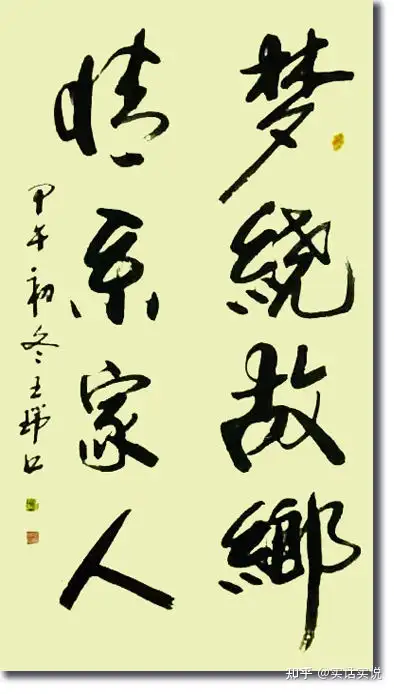 梦繞故鄉
情系家人
甲午初冬王
知乎 @实话实说